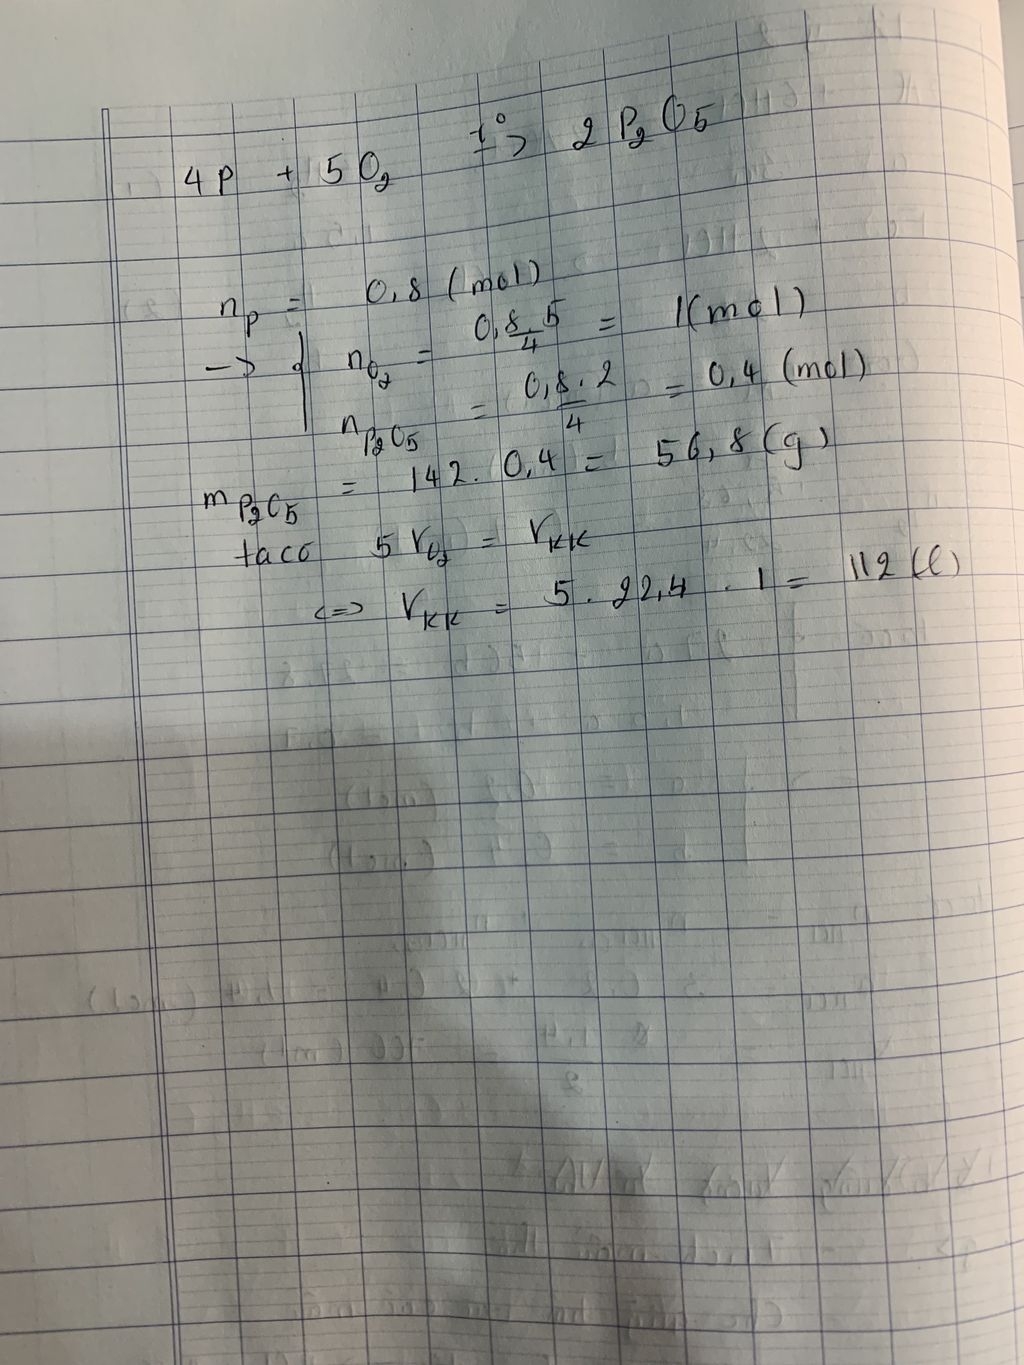 4P + 5O₂ t°→ 2P₂O₅
nₚ = 0,8 (mol)
→ { n_O₂ = 0,8.5/4 = 1(mol)
n_P₂O₅ = 0,8.2/4 = 0,4 (mol)
m_P₂O₅ = 142. 0,4 = 56,8(g)
taco 5 V_O₂ = V_KK
<=> V_KK = 5 . 22,4 . 1 = 112 (l)